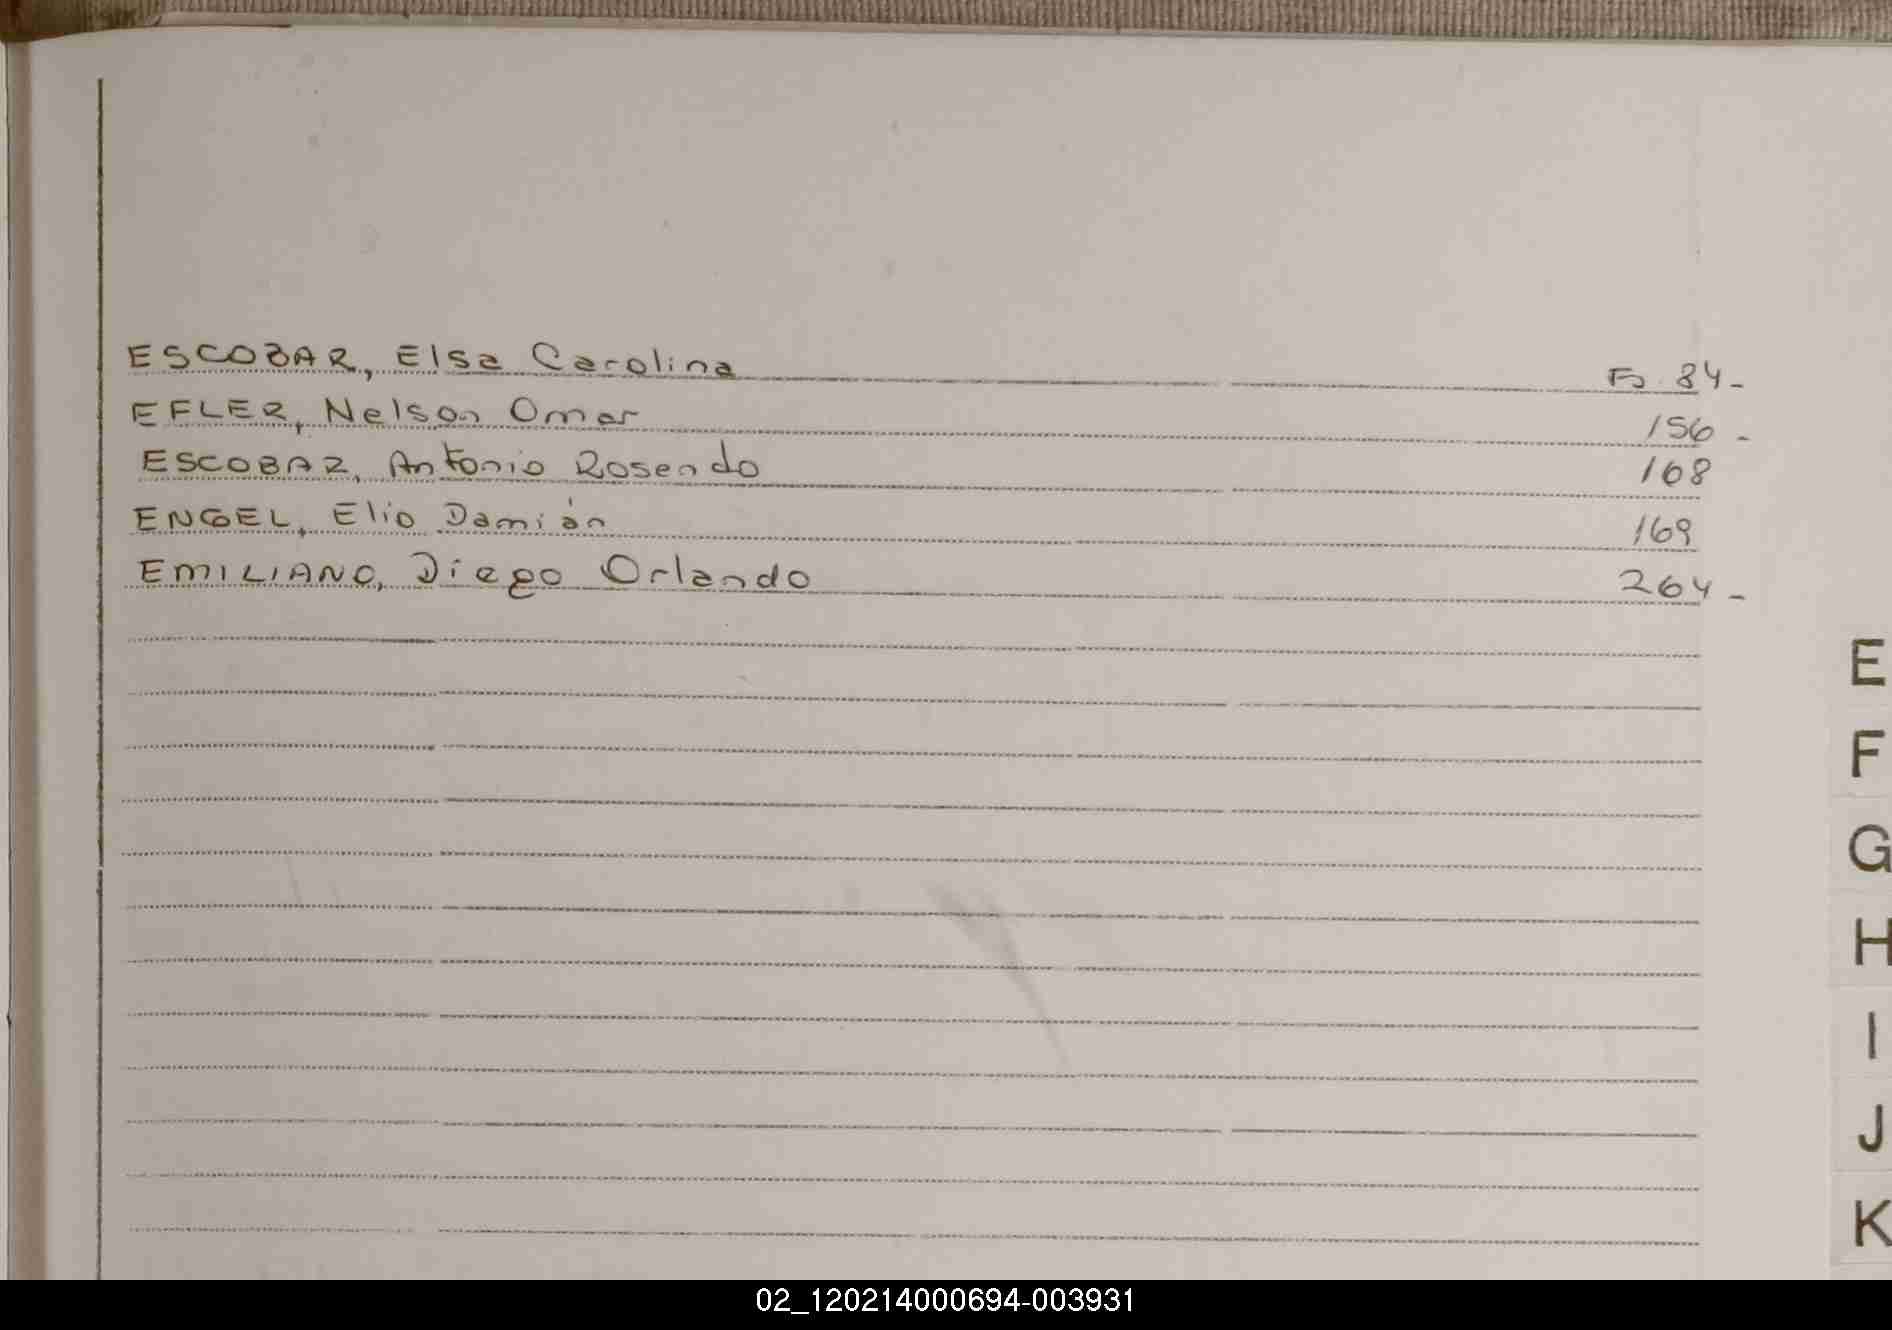 ESCOBAR, Elsa Carolina Fs. 84-
EFLER, Nelson Omar 156-
ESCOBAR, Antonio Rosendo 168
ENGEL, Elio Damián 169
EMILIANO, Diego Orlando 264-
E
F
G
H
I
J
K
02_120214000694-003931